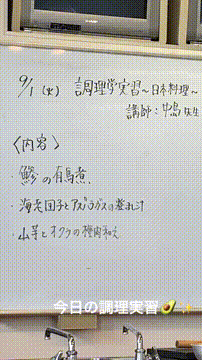 9/1 (火) 調理学実習 ~日本料理~
講師:中島先生
〈内容〉
・鯵の有馬煮
・海老団子とアスパラガスの葛汁
・山芋とオクラの梅肉和え
今日の調理実習🥑✨